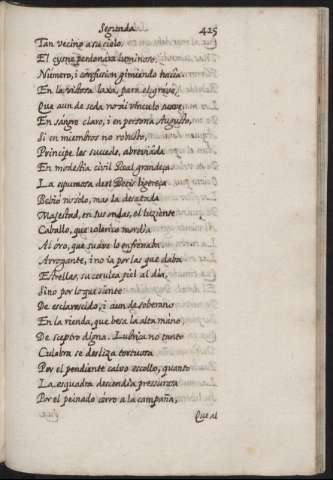 Segunda. 425
Tan vecino a su cielo.
El cysne perdonara luminoso;
Número, i confusion gimiendo hacia
En la vistosa laxa, para el grave,
Que aun de seda no ai vínculo suave
En sangre claro, i en persona Augusto,
Si en miembros no robusto,
Principe les succede, abreviada
En modestia civil Real grandeça
La spumosa del Betis ligereça
Bebió no sólo, mas la desatada
Majestad, en sus ondas, el luziente
Caballo, que colerico mordia
Al óro, que suave lo enfrenaba
Arrogante, i no ia por las que daba
Estrellas, su cerulea piel al dia,
Sino por lo que siente
De esclarecido, i aun de soberano
En la rienda, que besa la alta mano
De sceptro digna. Lubrica no tanto
Culebra se desliza tortuosa
Por el pendiente calvo escollo, quanto
La esquadra descendia pressurosa
Por el peinado cérro a la campaña,
Que al